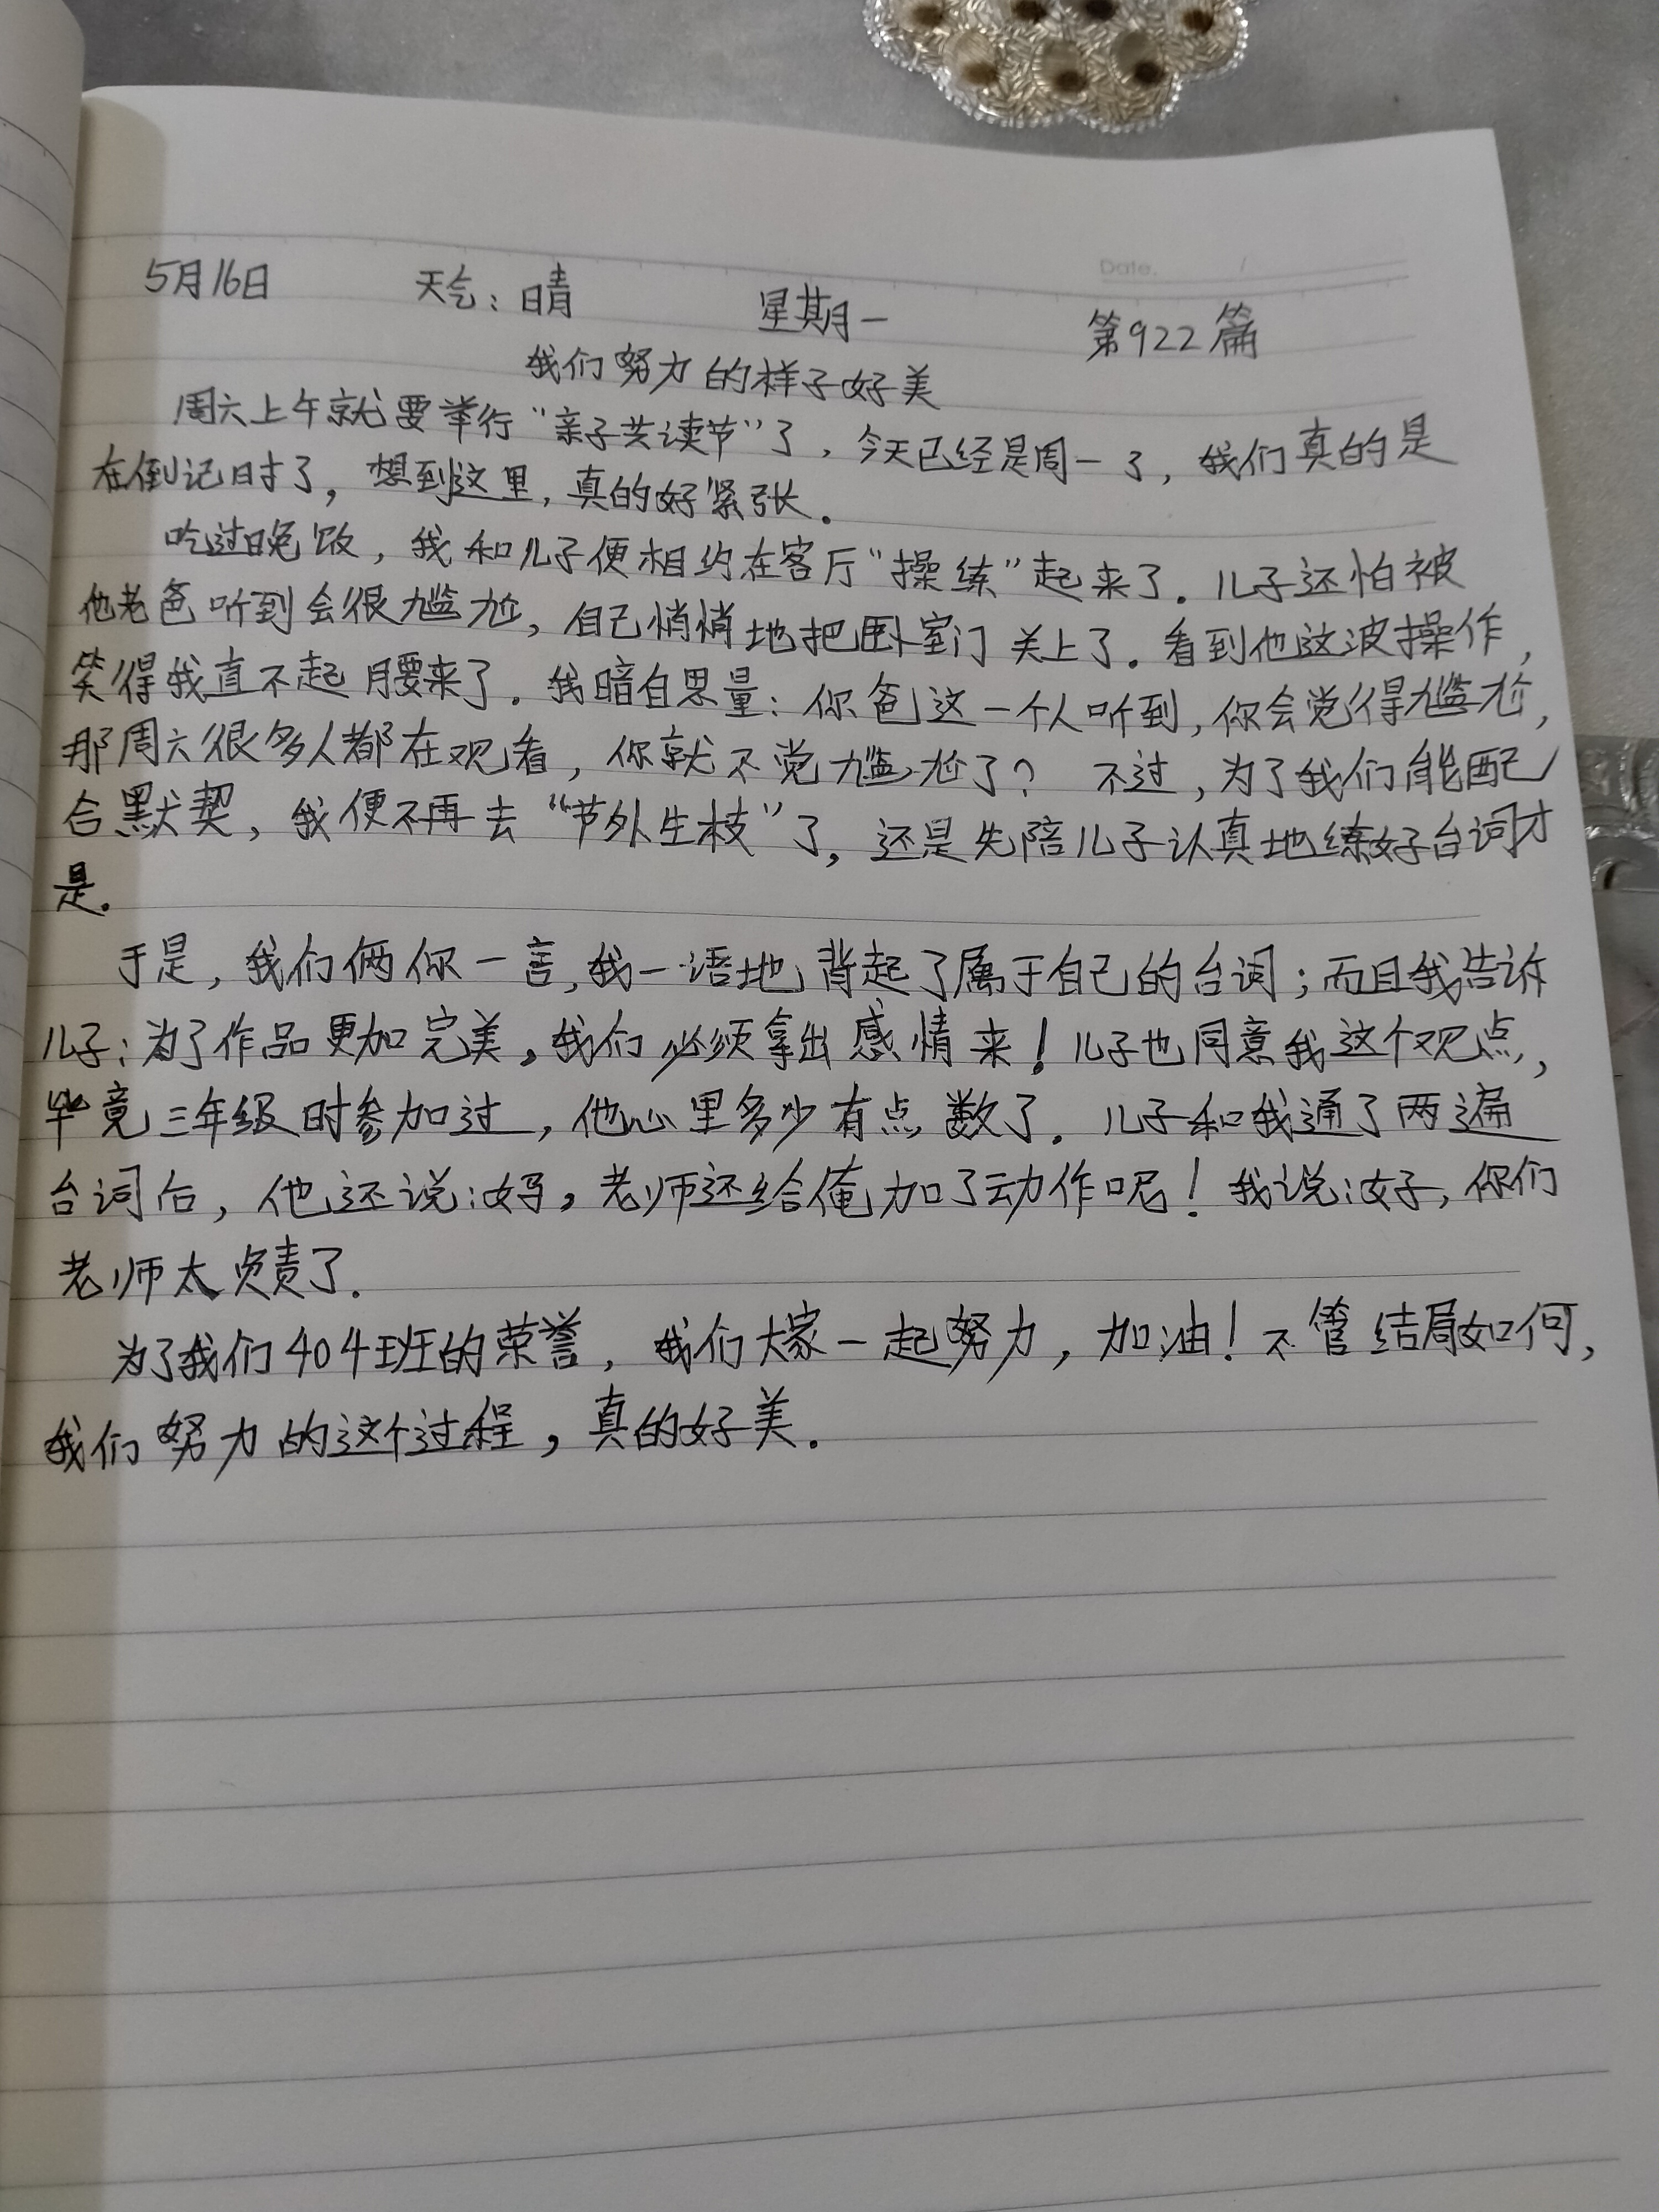 Date.
5月16日 天气：晴 星期一 第922篇
我们努力的样子好美
周六上午就要举行“亲子共读节”了，今天已经是周一了，我们真的是
在倒记时了，想到这里，真的好紧张。
吃过晚饭，我和儿子便相约在客厅“操练”起来了。儿子还怕被
他老爸听到会很尴尬，自己悄悄地把卧室门关上了。看到他这波操作，
笑得我直不起腰来了。我暗自思量：你爸这一个人听到，你会觉得尴尬，
那周六很多人都在观看，你就不觉尴尬了？不过，为了我们能配
合默契，我便不再去“节外生枝”了，还是先陪儿子认真地练好台词才
是。
于是，我们俩你一言，我一语地背起了属于自己的台词；而且我告诉
儿子：为了作品更加完美，我们必须拿出感情来！儿子也同意我这个观点，
毕竟三年级时参加过，他心里多少有点数了。儿子和我通了两遍
台词后，他还说：妈，老师还给俺加了动作呢！我说：好，你们
老师太负责了。
为了我们404班的荣誉，我们大家一起努力，加油！不管结局如何，
我们努力的这个过程，真的好美。